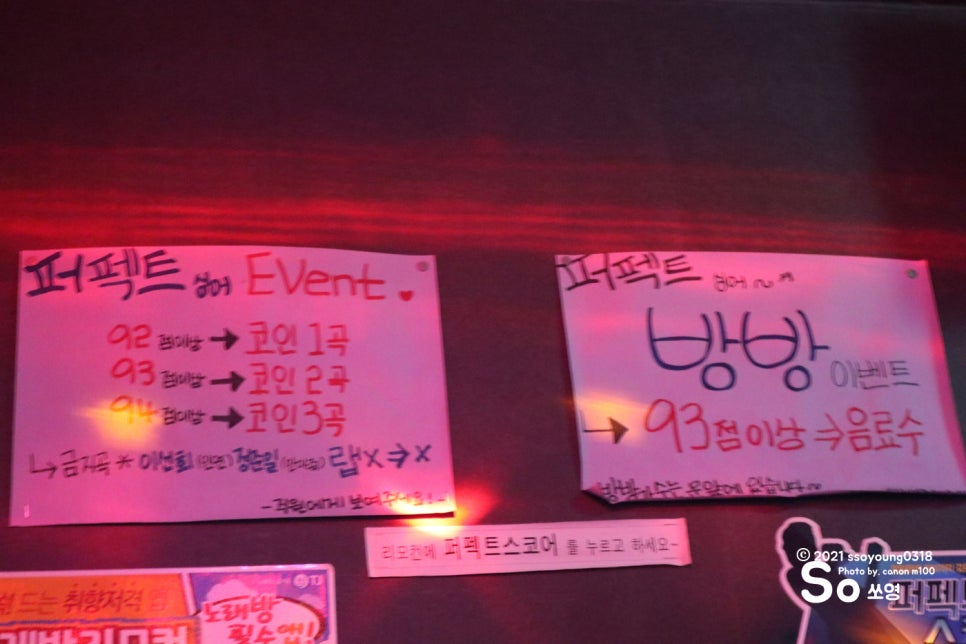 퍼펙트 싱어 Event
92 점이상 → 코인 1곡
93 점이상 → 코인 2곡
94 점이상 → 코인 3곡
↳ 금지곡 * 이선희 (인연) 정승일 랩X → X
- 직원에게 보여주세요! -
퍼펙트 싱어 ~
방방 이벤트
↳ 93점 이상 ⇒ 음료수
문앞에 있습니다~
리모컨에 퍼펙트스코어 를 누르고 하세요~
드는 취향저격
TJ
노래방
필수앱!
© 2021 ssoyoung0318
Photo by. canon m100
So 쏘영